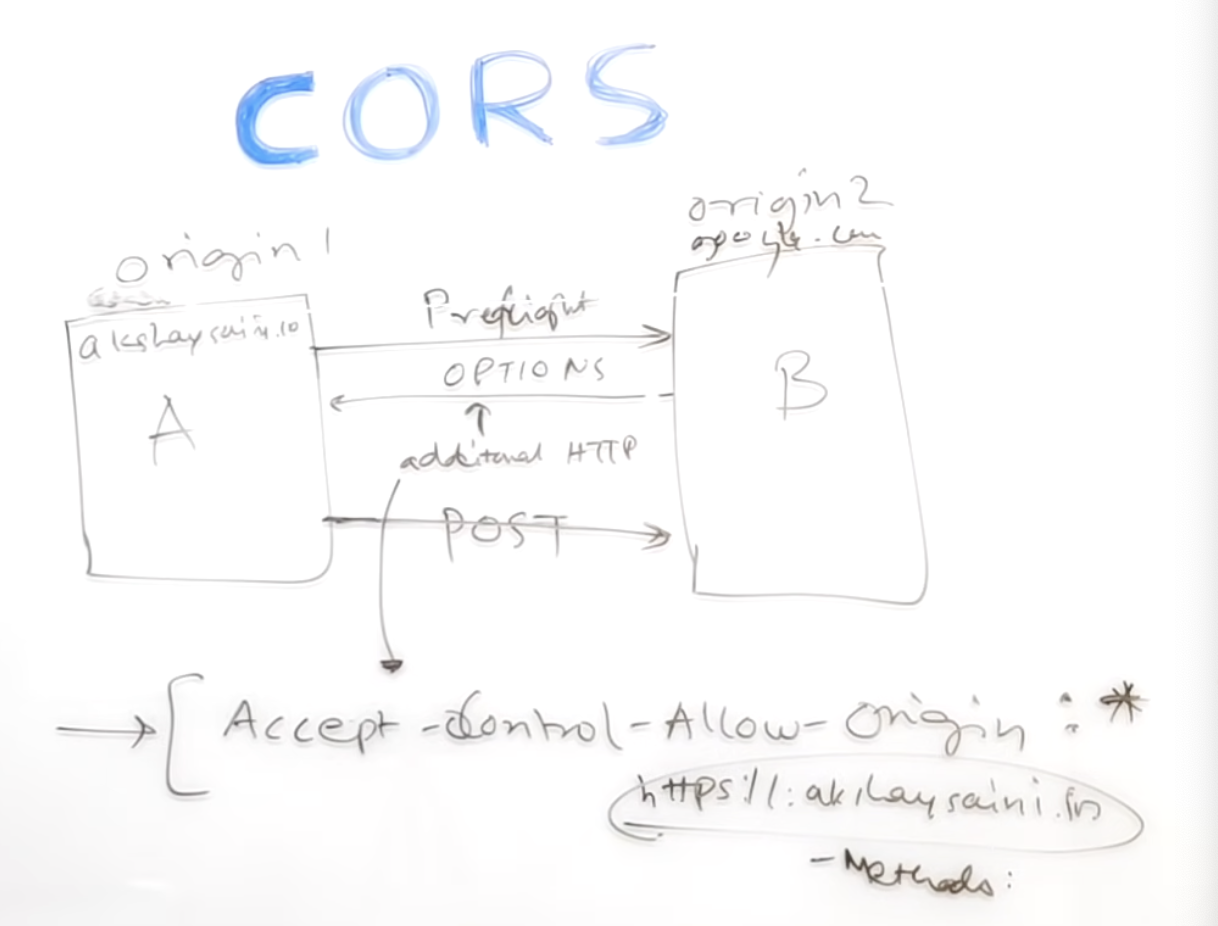 CORS
origin 1
akshaysaini.io
A
origin 2
google.com
B
Preflight
OPTIONS
additonal HTTP
POST
Accept-Control-Allow-Origin : *
https://:akshaysaini.in
- Methods: